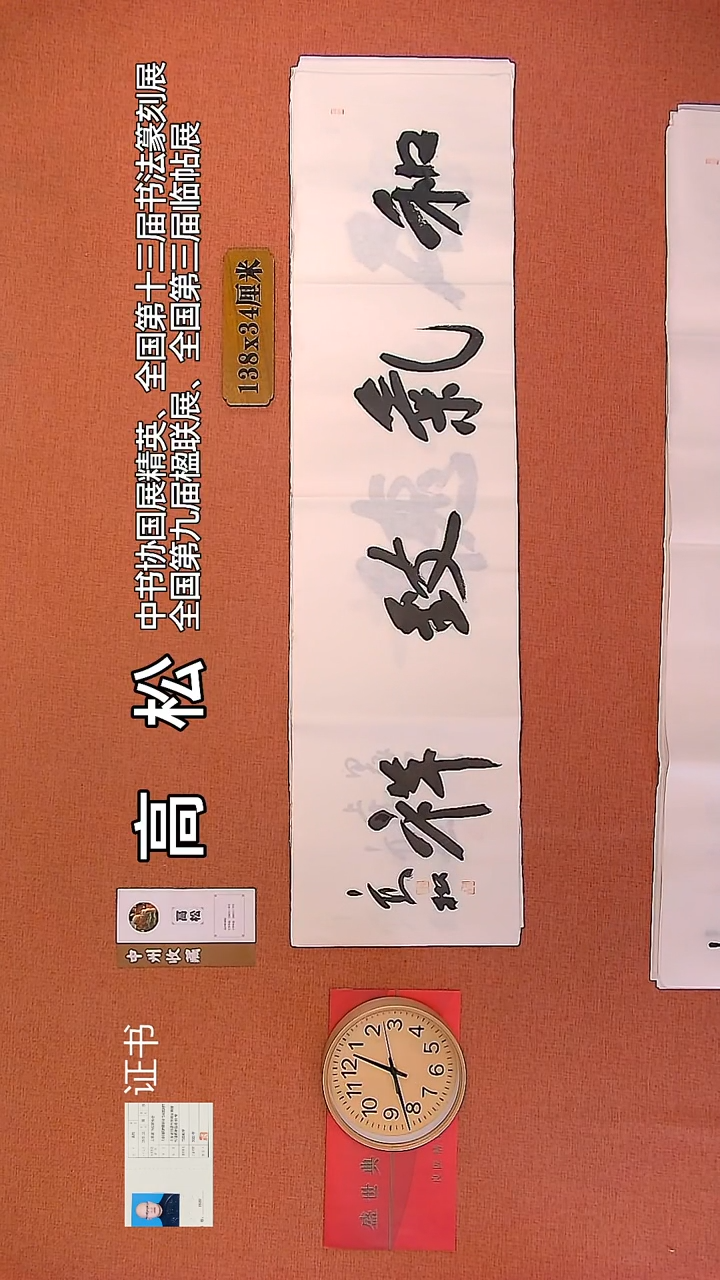 中书协国展精英、全国第十三届书法篆刻展
全国第九届楹联展、全国第三届临帖展
高 松
138x34厘米
和气致祥
高松
高松
中州收藏
证书
12
1
2
3
4
5
6
7
8
9
10
11
盛世典